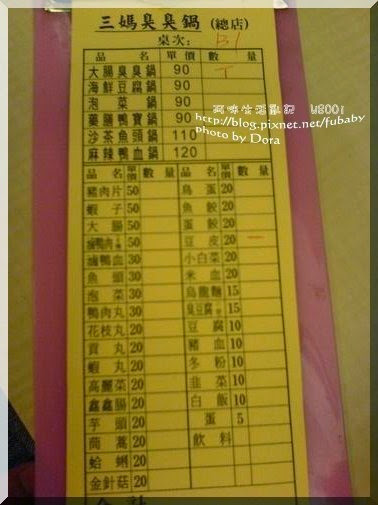 三媽臭臭鍋 (總店)
桌次: B1
品 名 單價 數 量
大腸臭臭鍋 90 T
海鮮豆腐鍋 90
泡菜鍋 90
藥膳鴨寶鍋 90
沙茶魚頭鍋 110
麻辣鴨血鍋 120
阿味生活雜記 W800i
http://blog.pixnet.net/fubaby
photo by Dora
品 名 單價 數 量 品 名 單價 數 量
豬肉片 50 鳥蛋 20
蝦子 50 魚餃 20
大腸 50 蛋餃 20
50 豆皮 20 一
滷鴨血 30 小白菜 20
魚頭 30 米血 20
泡菜 30 烏龍麵 15
鴨肉丸 30 臭豆腐 15
花枝丸 20 豆腐 10
貢丸 20 豬血 10
蝦丸 20 冬粉 10
高麗菜 20 韭菜 10
鑫鑫腸 20 白飯 10
芋頭 20 蛋 5
茼蒿 20 飲料
蛤蜊 20
金針菇 20
合計